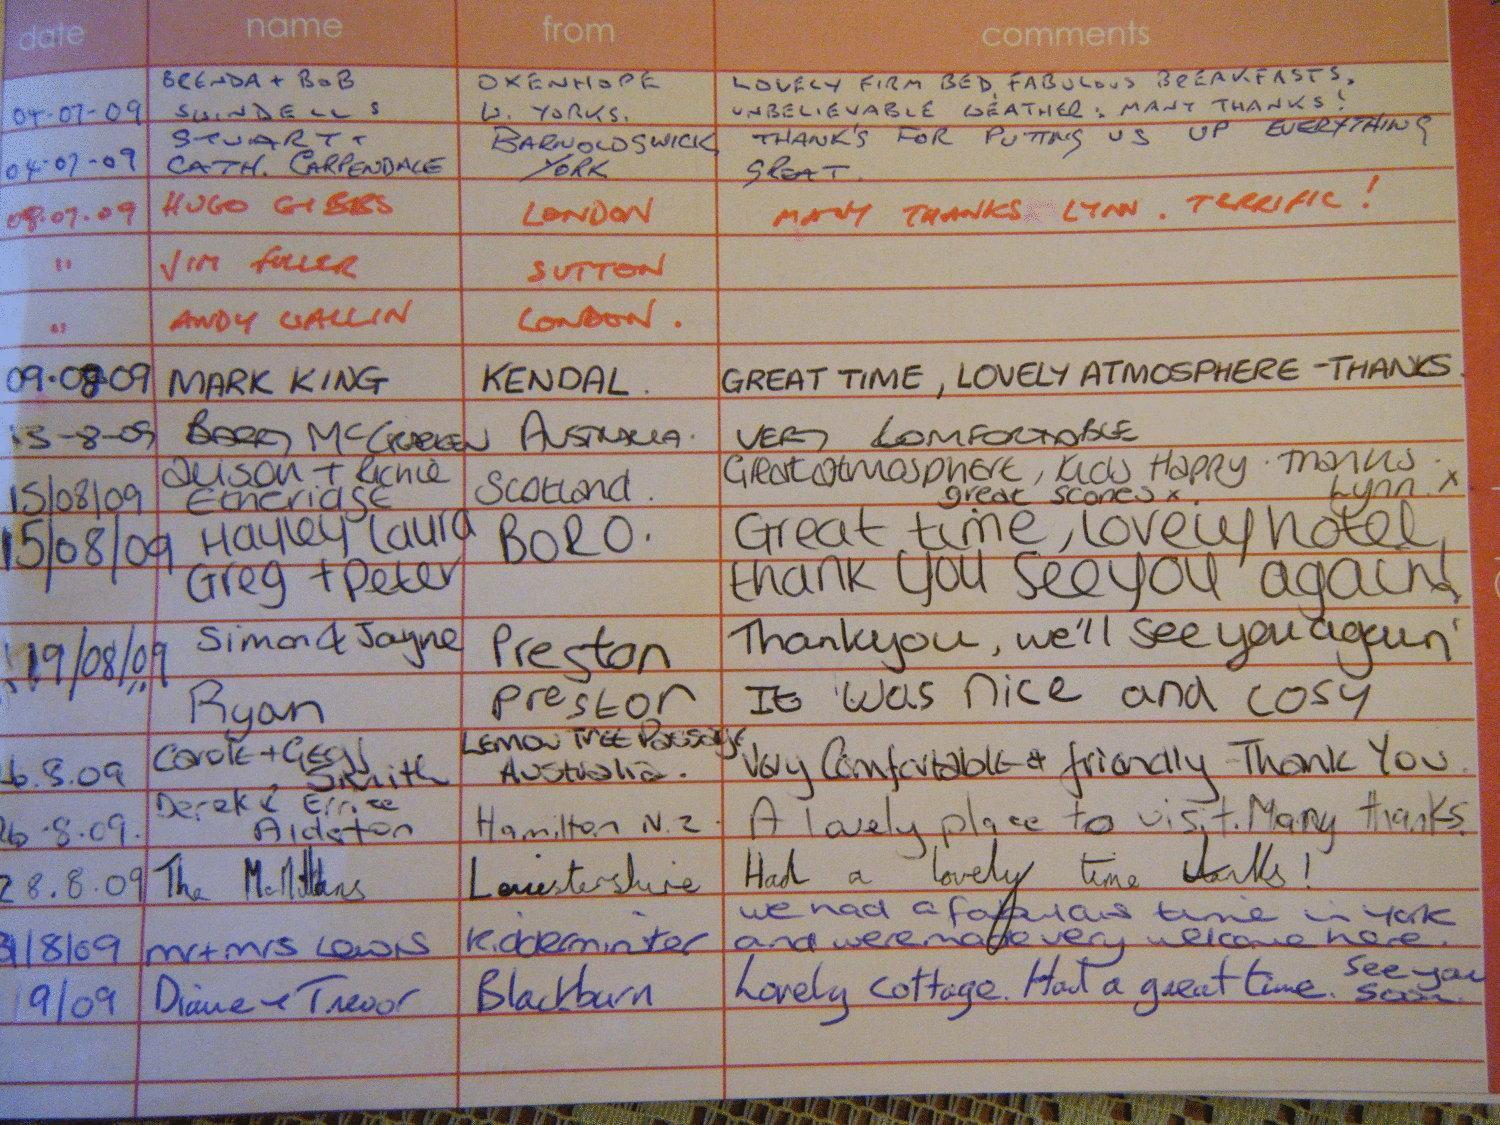 date name from comments
BRENDA + BOB OXENHOPE LOVELY FIRM BED, FABULOUS BREAKFASTS,
04-07-09 SWINDELLS W. YORKS. UNBELIEVABLE WEATHER. MANY THANKS!
STUART + BARNOLDSWICK, THANK'S FOR PUTTING US UP EVERYTHING
04-07-09 CATH. CARPENDALE YORK GREAT.
08.07.09 HUGO GIBBS LONDON MANY THANKS LYNN. TERRIFIC!
" JIM FULLER SUTTON
" ANDY WALLIN LONDON.
09.08.09 MARK KING KENDAL. GREAT TIME, LOVELY ATMOSPHERE -THANKS.
13-8-09 BARRY McCRACKEN AUSTRALIA. VERY COMFORTABLE
Alison + Richie Great atmosphere, Kids Happy. Thanks
15/08/09 Etheridge Scotland. great scones x. Lynn. x
15/08/09 Hayley Laura BORO. Great time, lovely hotel,
Greg + Peter thank you see you again!
19/08/09 Simon & Jayne Preston Thankyou, we'll see you again'
Ryan Preston It was nice and cosy
Carole + Geoff LEMON TREE Passage
6.8.09 Smith Australia. Very Comfortable & friendly -Thank You.
Derek &
26.8.09. Hamilton N.Z. A lovely place to visit. Many thanks.
28.8.09 The McMillans Leicestershire Had a lovely time thanks!
we had a fabulous time in York
31/8/09 mr+mrs Lewis Kidderminster and were made very welcome here.
9/09 Diane & Trevor Blackburn Lovely cottage. Had a great time. See you
soon.